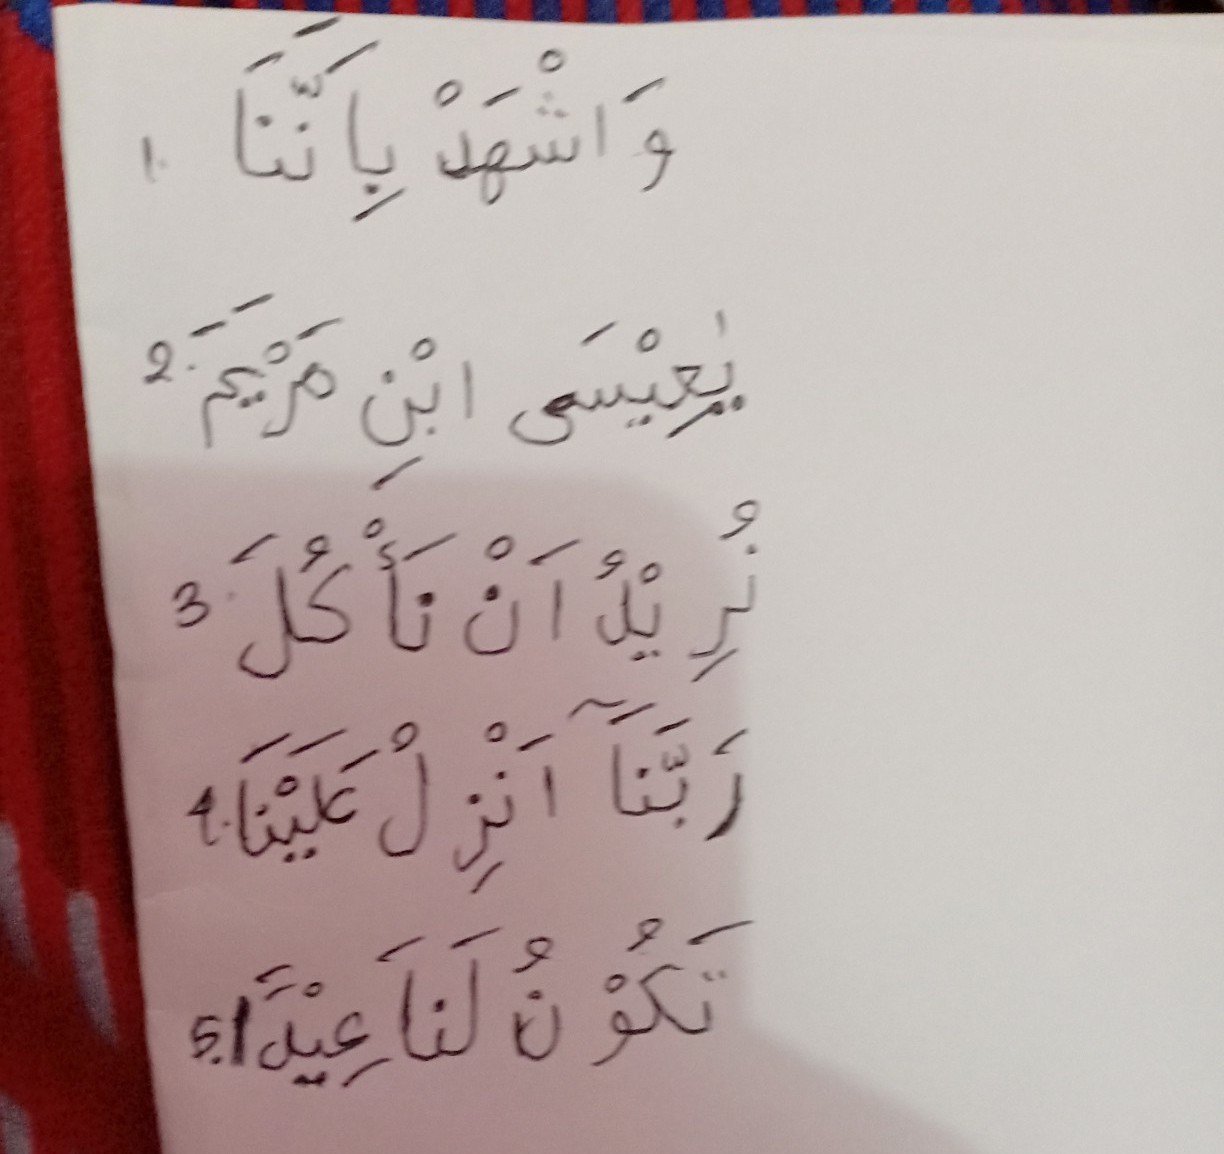 1. وَاشْهَدْ بِاَنَّنَا
2. يٰعِيْسَى ابْنِ مَرْيَمَ
3. نُرِيْدُ اَنْ نَأْكُلَ
4. رَبَّنَآ اَنْزِلْ عَلَيْنَا
5. تَكُوْنُ لَنَا عِيْدًا